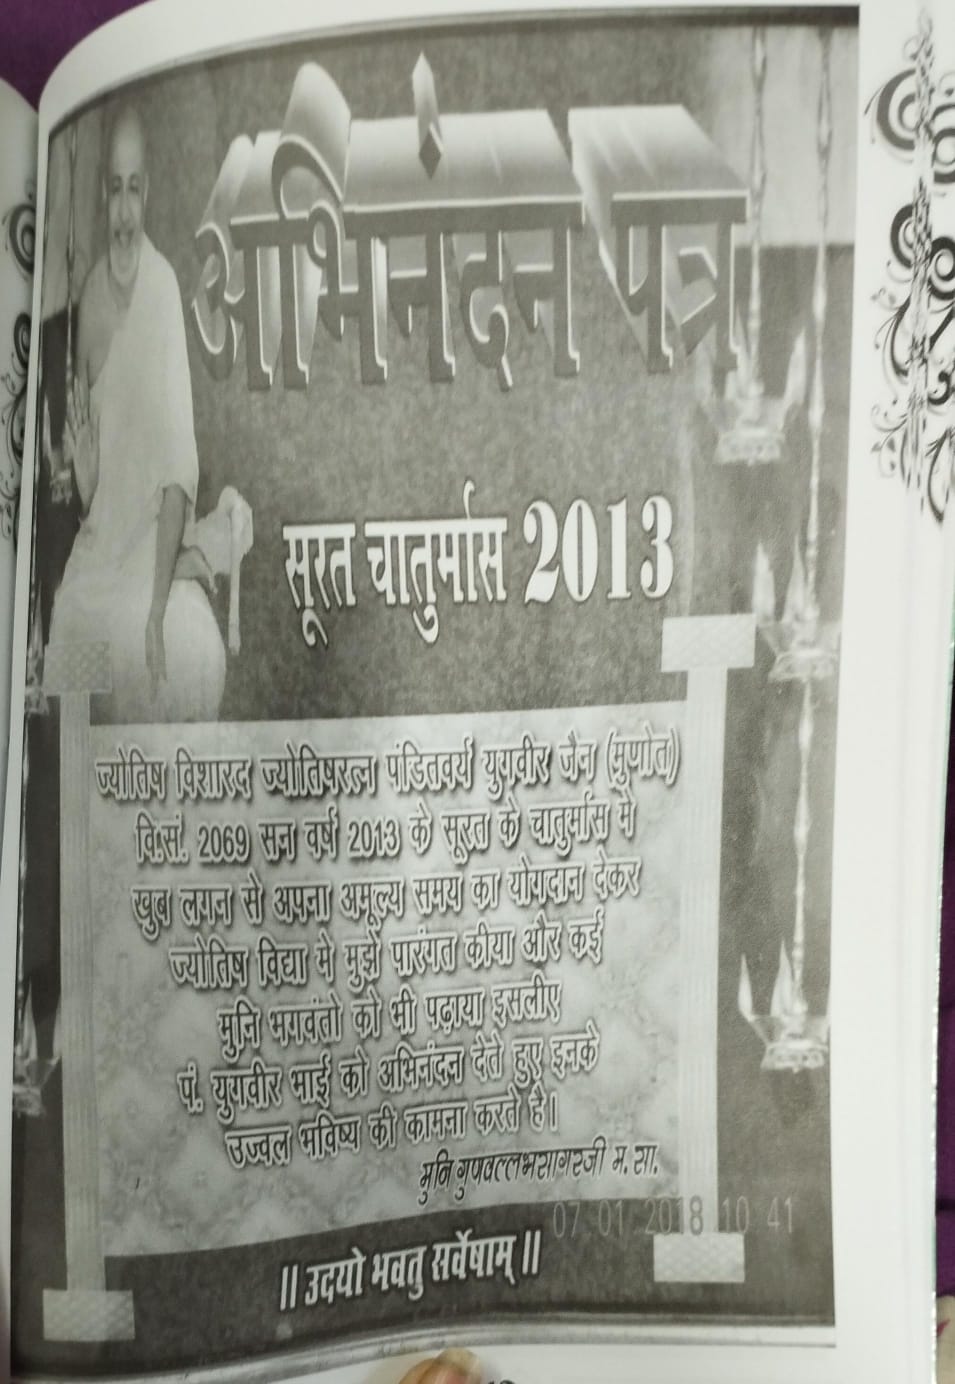 अभिनंदन पत्र
सूरत चातुर्मास 2013
ज्योतिष विशारद ज्योतिषरत्न पंडितवर्य युगवीर जैन (मुणोत)
वि.सं. 2069 सन वर्ष 2013 के सूरत के चातुर्मास मे
खुब लगन से अपना अमूल्य समय का योगदान देकर
ज्योतिष विद्या मे मुझे पारंगत कीया और कई
मुनि भगवंतो को भी पढ़ाया इसलीए
पं. युगवीर भाई को अभिनंदन देते हुए इनके
उज्वल भविष्य की कामना करते है।
मुनि गुणवल्लभसागरजी म. सा.
07 01 2018 10 41
॥ उदयो भवतु सर्वेषाम् ॥